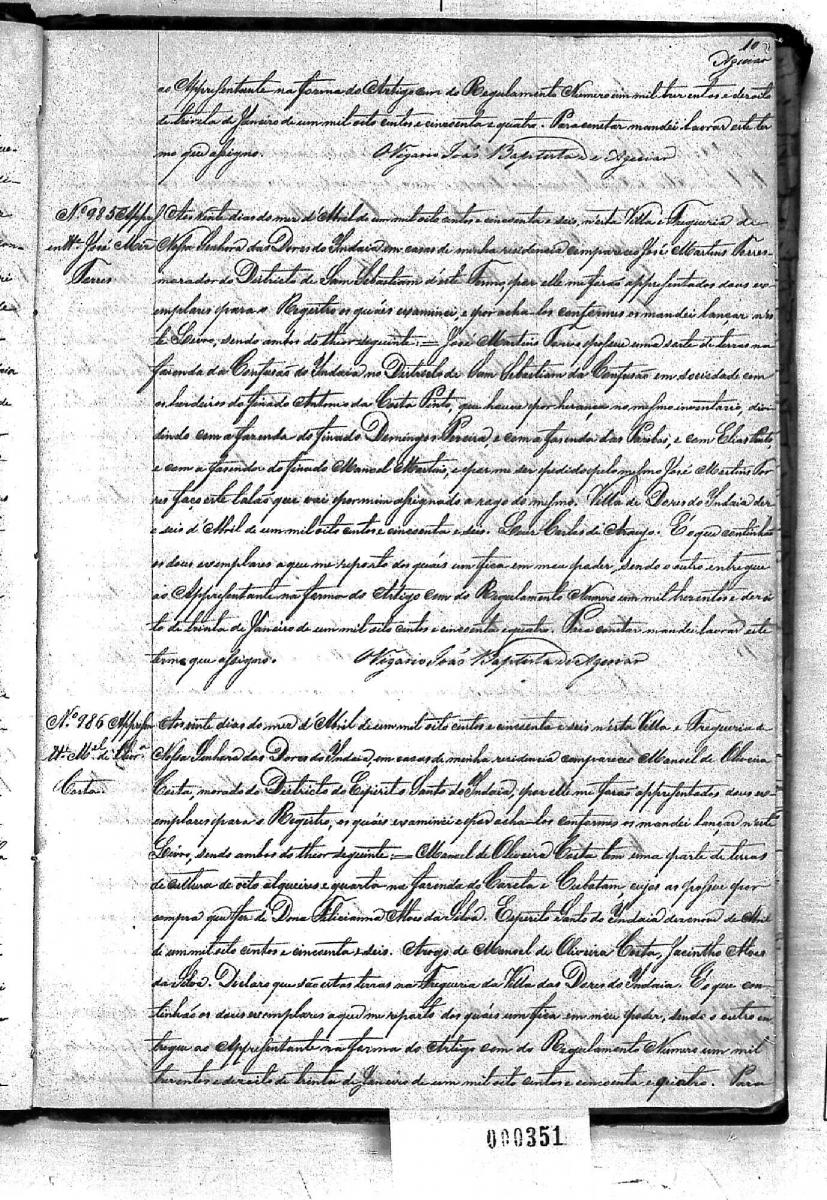 10
Azevedo
ao Appresentante na forma do Artigo cem do Regulamento Numero um mil trezentos e dezoito
de trinta de Janeiro de um mil oito centos e cincoenta e quatro. Para constar mandei lavrar este ter
mo que assigno. O Vigario João Baptista de Azevedo
Nº 985 Appres
en te José Mar
Torres
Aos vinte dias do mez d'Abril de um mil oito centos e cincoenta e seis, n'esta Villa e Freguezia de
Nossa Senhora das Dores do Indaiá, em casas de minha residencia compareceo José Martins Torres
morador do Districto de San Sebastiam d'este Termo, por elle me forão appresentados dous ex
emplares para o Registro os quáis examinei, e por acha-los conformes os mandei lançar n'es
te Livro, sendo ambos do theor seguinte = José Martins Torres possue uma sorte de terras na
fazenda da Confusão do Indaiá no Districto de San Sebastiam da Confusão em sociedade com
os herdeiros do finado Antonio da Costa Pinto, que houve por herança no mesmo inventario, divi
dindo com a fazenda do finado Domingos Pereira, e com a fazenda das Perobas, e com Elias Pinto,
e com a fazenda do finado Manoel Martins, e por me ser pedido pelo mesmo José Martins Tor
res faço este talão que vai por mim assignado a rogo do mesmo. Villa de Dores do Indaiá dez
e seis d'Abril de um mil oito centos e cincoenta e seis. Luis Carlos de Araujo. É o que continhão
os dous exemplares a que me reporto dos quáis um fica em meu poder, sendo o outro entregue
ao Appresentante na forma do Artigo cem do Regulamento Numero um mil trezentos e dezoi
to de trinta de Janeiro de um mil oito centos e cincoenta e quatro. Para constar mandei lavrar este
termo que assigno. O Vigario João Baptista de Azevedo
Nº 986 Appresen
te Mel de Olivra
Costa
Aos vinte dias do mez d'Abril de um mil oito centos e cincoenta e seis n'esta Villa e Freguezia de
Nossa Senhora das Dores do Indaiá, em casas de minha residencia compareceo Manoel de Oliveira
Costa, morador do Districto do Espirito Santo do Indaiá, por elle me forão appresentados dous ex
emplares para o Registro, os quáis examinei e por acha-los conformes os mandei lançar n'este
Livro, sendo ambos do theor seguinte = Manoel de Oliveira Costa tem uma parte de terras
de cultura de oito alqueires e quarta na fazenda do Careta e Cubatam, cujas as possue por
compra que fez de Dona Felicianna Alves da Silva. Espirito Santo do Indaiá dezenove de Abril
de um mil oito centos e cincoenta e seis. Arogo de Manoel de Oliveira Costa, Jacintho Alves
da Silva. Declaro que são estas terras na Freguezia da Villa das Dores do Indaiá. É o que con
tinhão os dous exemplares a que me reporto dos quáis um fica em meu poder, sendo o outro en
tregue ao Appresentante na forma do Artigo cem do Regulamento Numero um mil
trezentos e dezoito de trinta de Janeiro de um mil oito centos e cincoenta e quatro. Para
000351